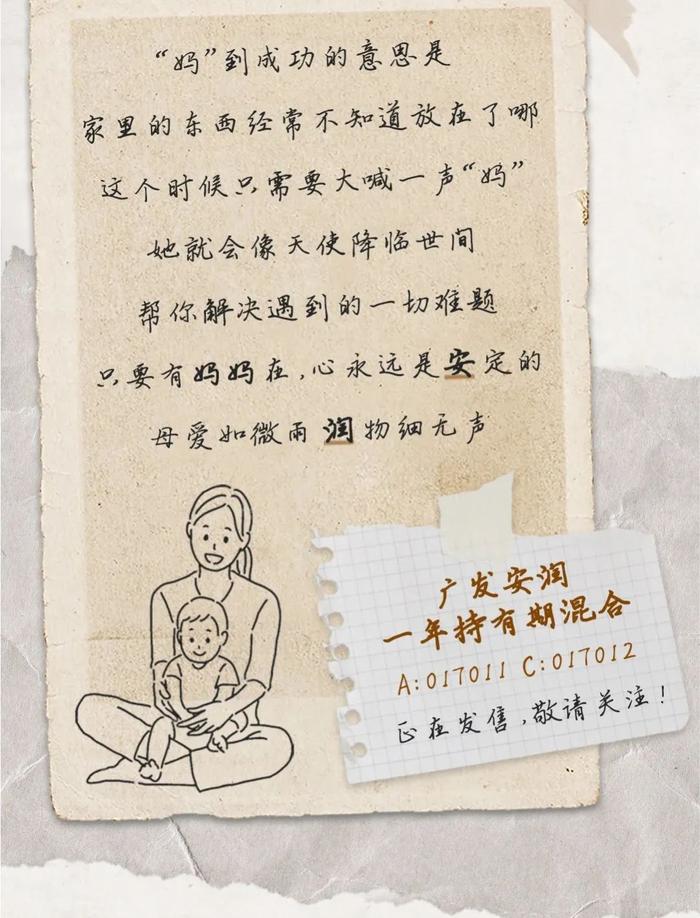 “妈”到成功的意思是
家里的东西经常不知道放在了哪
这个时候只需要大喊一声“妈”
她就会像天使降临世间
帮你解决遇到的一切难题
只要有妈妈在,心永远是安定的
母爱如微雨润物细无声
广发安润
一年持有期混合
A:017011 C:017012
正在发售,敬请关注!